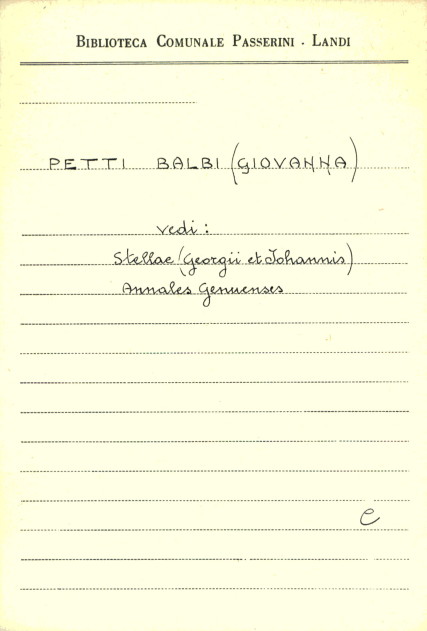 BIBLIOTECA COMUNALE PASSERINI - LANDI
PETTI BALBI (GIOVANNA)
vedi:
Stellae (Georgii et Iohannis)
Annales Genuenses
C